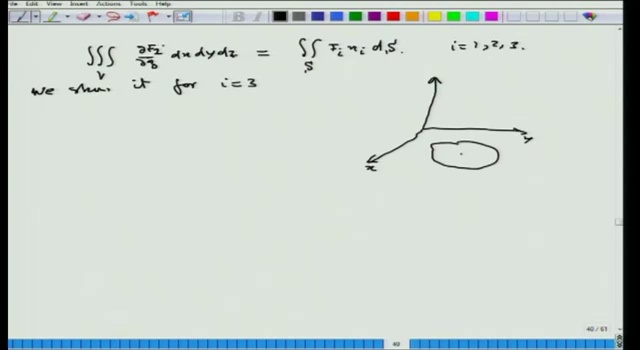 Edit View Insert Actions Tools Help
∭_V ∂F_i/∂x_i dx dy dz = ∬_S F_i n_i dS. i = 1, 2, 3.
we show it for i = 3
y
x
40 / 61
40